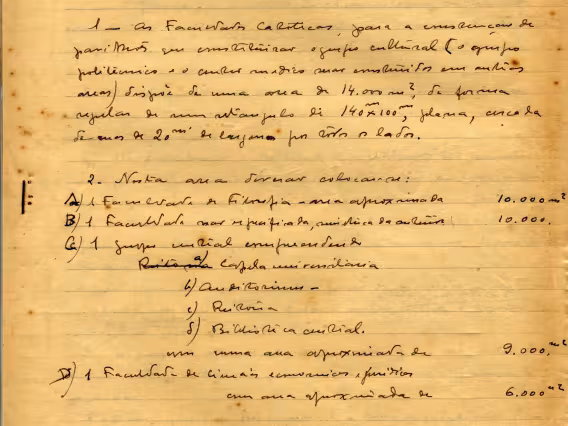 1 — As Faculdades Catolicas, para a construção de
pavilhões que constituirão o grupo cultural (o grupo
politecnico e o centro medico serão construidos em outras
areas) dispõe de uma area de 14.000 m², de forma
regular de um retangulo de 140m x 100m, plana, cercada
de ruas de 20m de largura por todos os lados.
2. Nesta area devem colocar-se:
A) 1 Faculdade de Filosofia - area aproximada 10.000 m²
B) 1 Faculdade não especificada, identica da anterior 10.000.
C) 1 grupo central compreendendo
Reitoria a) Capela universitaria
b) Auditorium -
c) Reitoria
d) Biblioteca central.
com uma area aproximada de 9.000. m²
D) 1 Faculdade de ciencias economicas e juridicas
com area aproximada de 6.000 m²